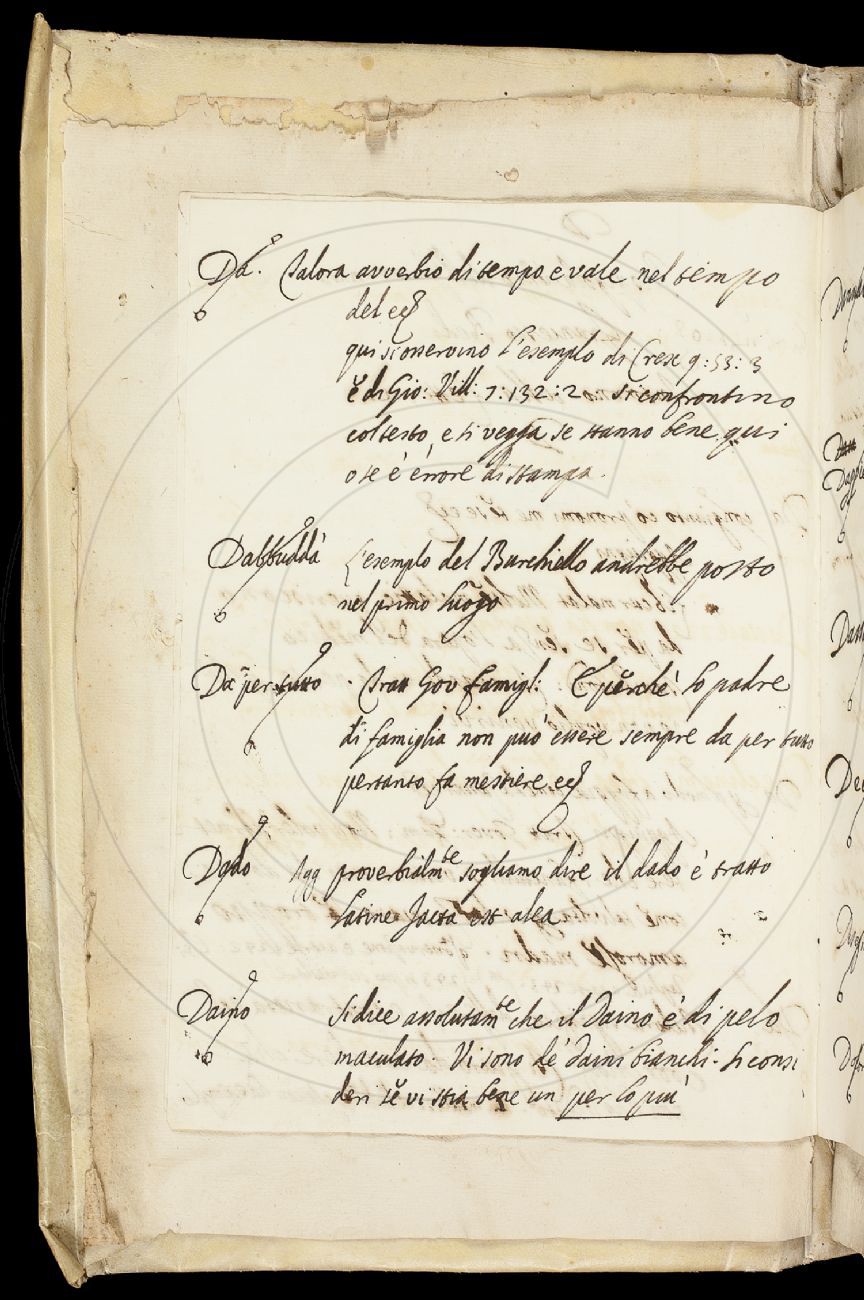 Da. Talora avverbio di tempo e vale nel tempo
del ecc
qui si osservino l'esemplo di Cresc 9:53:3
e di Gio: Vill: 7:132:2. si confrontino
col testo, e si vegga se stanno bene qui
o se è errore di stampa.
Dabbuddà L'esemplo del Burchiello andrebbe posto
nel primo luogo
Da per tutto. Tratt Gov famigl: E perchè lo padre
di famiglia non può essere sempre da per tutto
pertanto fa mestiere ecc
Dado Agg proverbialmte sogliamo dire il dado è tratto
latine Jacta est alea
Daino Si dice assolutamte che il Daino è di pelo
maculato. Vi sono de' daini bianchi. si consi
deri se vi stia bene un per lo più